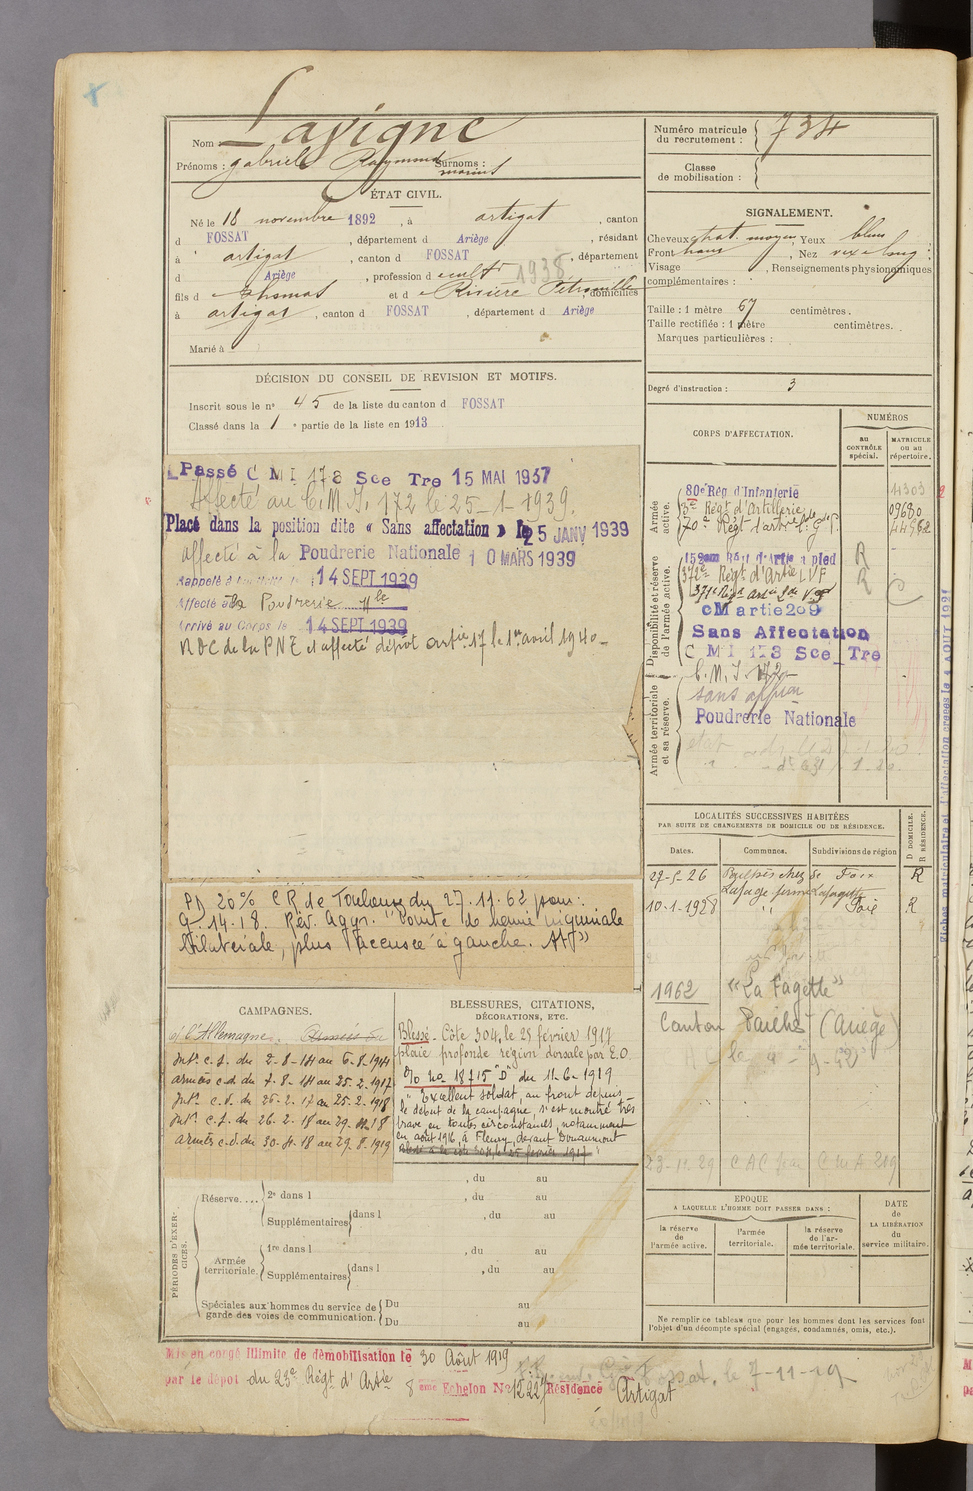 Nom Lavigne
Prénoms : gabriel Raymond Surnoms :
marius
ÉTAT CIVIL.
Né le 18 novembre 1892, à artigat, canton
d FOSSAT, département d Ariège, résidant
à artigat, canton d FOSSAT, département
d Ariège, profession de cultr 1938
fils de Thomas et de Rivière Pétronille, domiciliés
à artigat, canton d FOSSAT, département d Ariège
Marié à
DÉCISION DU CONSEIL DE REVISION ET MOTIFS.
Inscrit sous le no 45 de la liste du canton d FOSSAT
Classé dans la 1 e partie de la liste en 1913
Passé C M I 173 Sce Tre 15 MAI 1937
Affecté au C.M.I. 172 le 25-1-1939.
Placé dans la position dite « Sans affectation » le 25 JANV 1939
affecté à la Poudrerie Nationale 10 MARS 1939
Rappelé à l'activité le 14 SEPT 1939
Affecté à la Poudrerie Nle
Arrivé au Corps le 14 SEPT 1939
RDC de la PNE et affecté dépôt artie 17 le 1er avril 1940
PD 20% CR de Toulouse du 27.11.62 pour:
G. 14.18. Rév. Aggr. "Pointe de hernie inguinale
bilatérale, plus accusée à gauche.
CAMPAGNES.
c/ l'Allemagne. Armées du
Intr c.s. du 2-8-14 au 6-8-1914
armées c.d. du 7-8-14 au 25.2.1917
Intr c.d. du 26-2-17 au 25.2.1918
Intr c.s. du 26.2.18 au 29.11.18
armées c.d. du 30-11-18 au 29.8.1919
BLESSURES, CITATIONS,
DÉCORATIONS, ETC.
Blessé. Côte 304, le 25 février 1917
plaie profonde région dorsale par E.O.
O/o no 18715 "D" du 11-6-1919
"Excellent soldat, au front depuis
le début de la campagne, s'est montré très
brave en toutes circonstances, notamment
en août 1916, à Fleury, devant Douaumont
blessé à la côte 304 le 25 février 1917"
PÉRIODES D'EXERCICES.
Réserve.... 2e dans l , du au
Supplémentaires dans l , du au
Armée territoriale. 1re dans l , du au
Supplémentaires dans l , du au
Spéciales aux hommes du service de Du au
garde des voies de communication. Du au
Mis en congé illimité de démobilisation le 30 Août 1919
par le dépôt du 23e Régt d'Artie 8 eme Echelon No 1222 Résidence Artigat
Fossat, le 7-11-19
Numéro matricule
du recrutement : 734
Classe
de mobilisation :
SIGNALEMENT.
Cheveux chat. moyen, Yeux bleus
Front moyen, Nez
Visage , Renseignements physionomiques
complémentaires :
Taille : 1 mètre 67 centimètres.
Taille rectifiée : 1 mètre centimètres.
Marques particulières :
Degré d'instruction : 3
CORPS D'AFFECTATION.
NUMÉROS
AU CONTRÔLE spécial.
MATRICULE ou au répertoire.
Armée active.
80e Rég d'Infanterie 11303
3e Régt d'Artillerie 09630
70e Régt
Disponibilité et réserve de l'armée active.
152eme Régt d'Artie à pied R
372e Régt d'Artie LVF R
371e Régt Artie
CM artie 209
Sans Affectation
C M I 173 Sce Tre
Armée territoriale et sa réserve.
C.M.I. 172
sans affon
Poudrerie Nationale
LOCALITÉS SUCCESSIVES HABITÉES
PAR SUITE DE CHANGEMENTS DE DOMICILE OU DE RÉSIDENCE.
Dates. Communes. Subdivisions de région D DOMICILE. R RÉSIDENCE.
27-5-26 Foix R
Lafage
10-1-1928 " Foix R
1962 "La Fagette"
Canton Pailhès (Ariège)
23-11-29 C A C C M A 209
EPOQUE
A LAQUELLE L'HOMME DOIT PASSER DANS :
la réserve de l'armée active.
l'armée territoriale.
la réserve de l'armée territoriale.
DATE de LA LIBÉRATION du service militaire.
Ne remplir ce tableau que pour les hommes dont les services font
l'objet d'un décompte spécial (engagés, condamnés, omis, etc.).